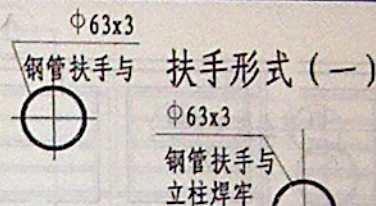 ф63x3
钢管扶手与
扶手形式（一）
ф63x3
钢管扶手与
立柱焊牢